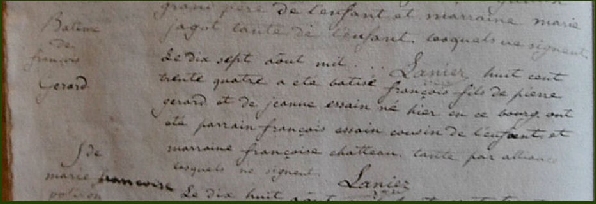 grand père de l'enfant et marraine marie
jagut tante de l'enfant. lesquels ne signent
Batême
de
françois
Gerard
Le dix sept aôut mil ... Lanier huit cent
trente quatre a eté batisé françois fils de pierre
gerard et de jeanne essain né hier en ce bourg, ont
eté parrain françois essain cousin de l'enfant, et
marraine françoise chatteau. tante par alliance
lesquels ne signent. Lanier
S de
marie francoise
Le dix huit aôut